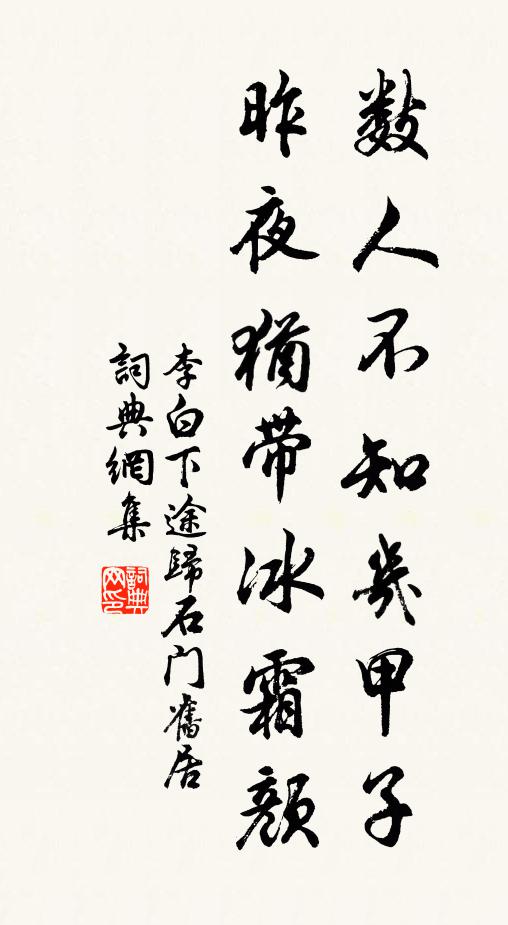 数人不知幾甲子
昨夜猶带冰霜颜
李白下途歸石门舊居
詞典網集
詞典網印